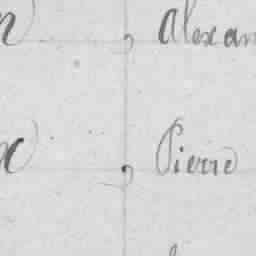 n , Alexan
x , Pierre